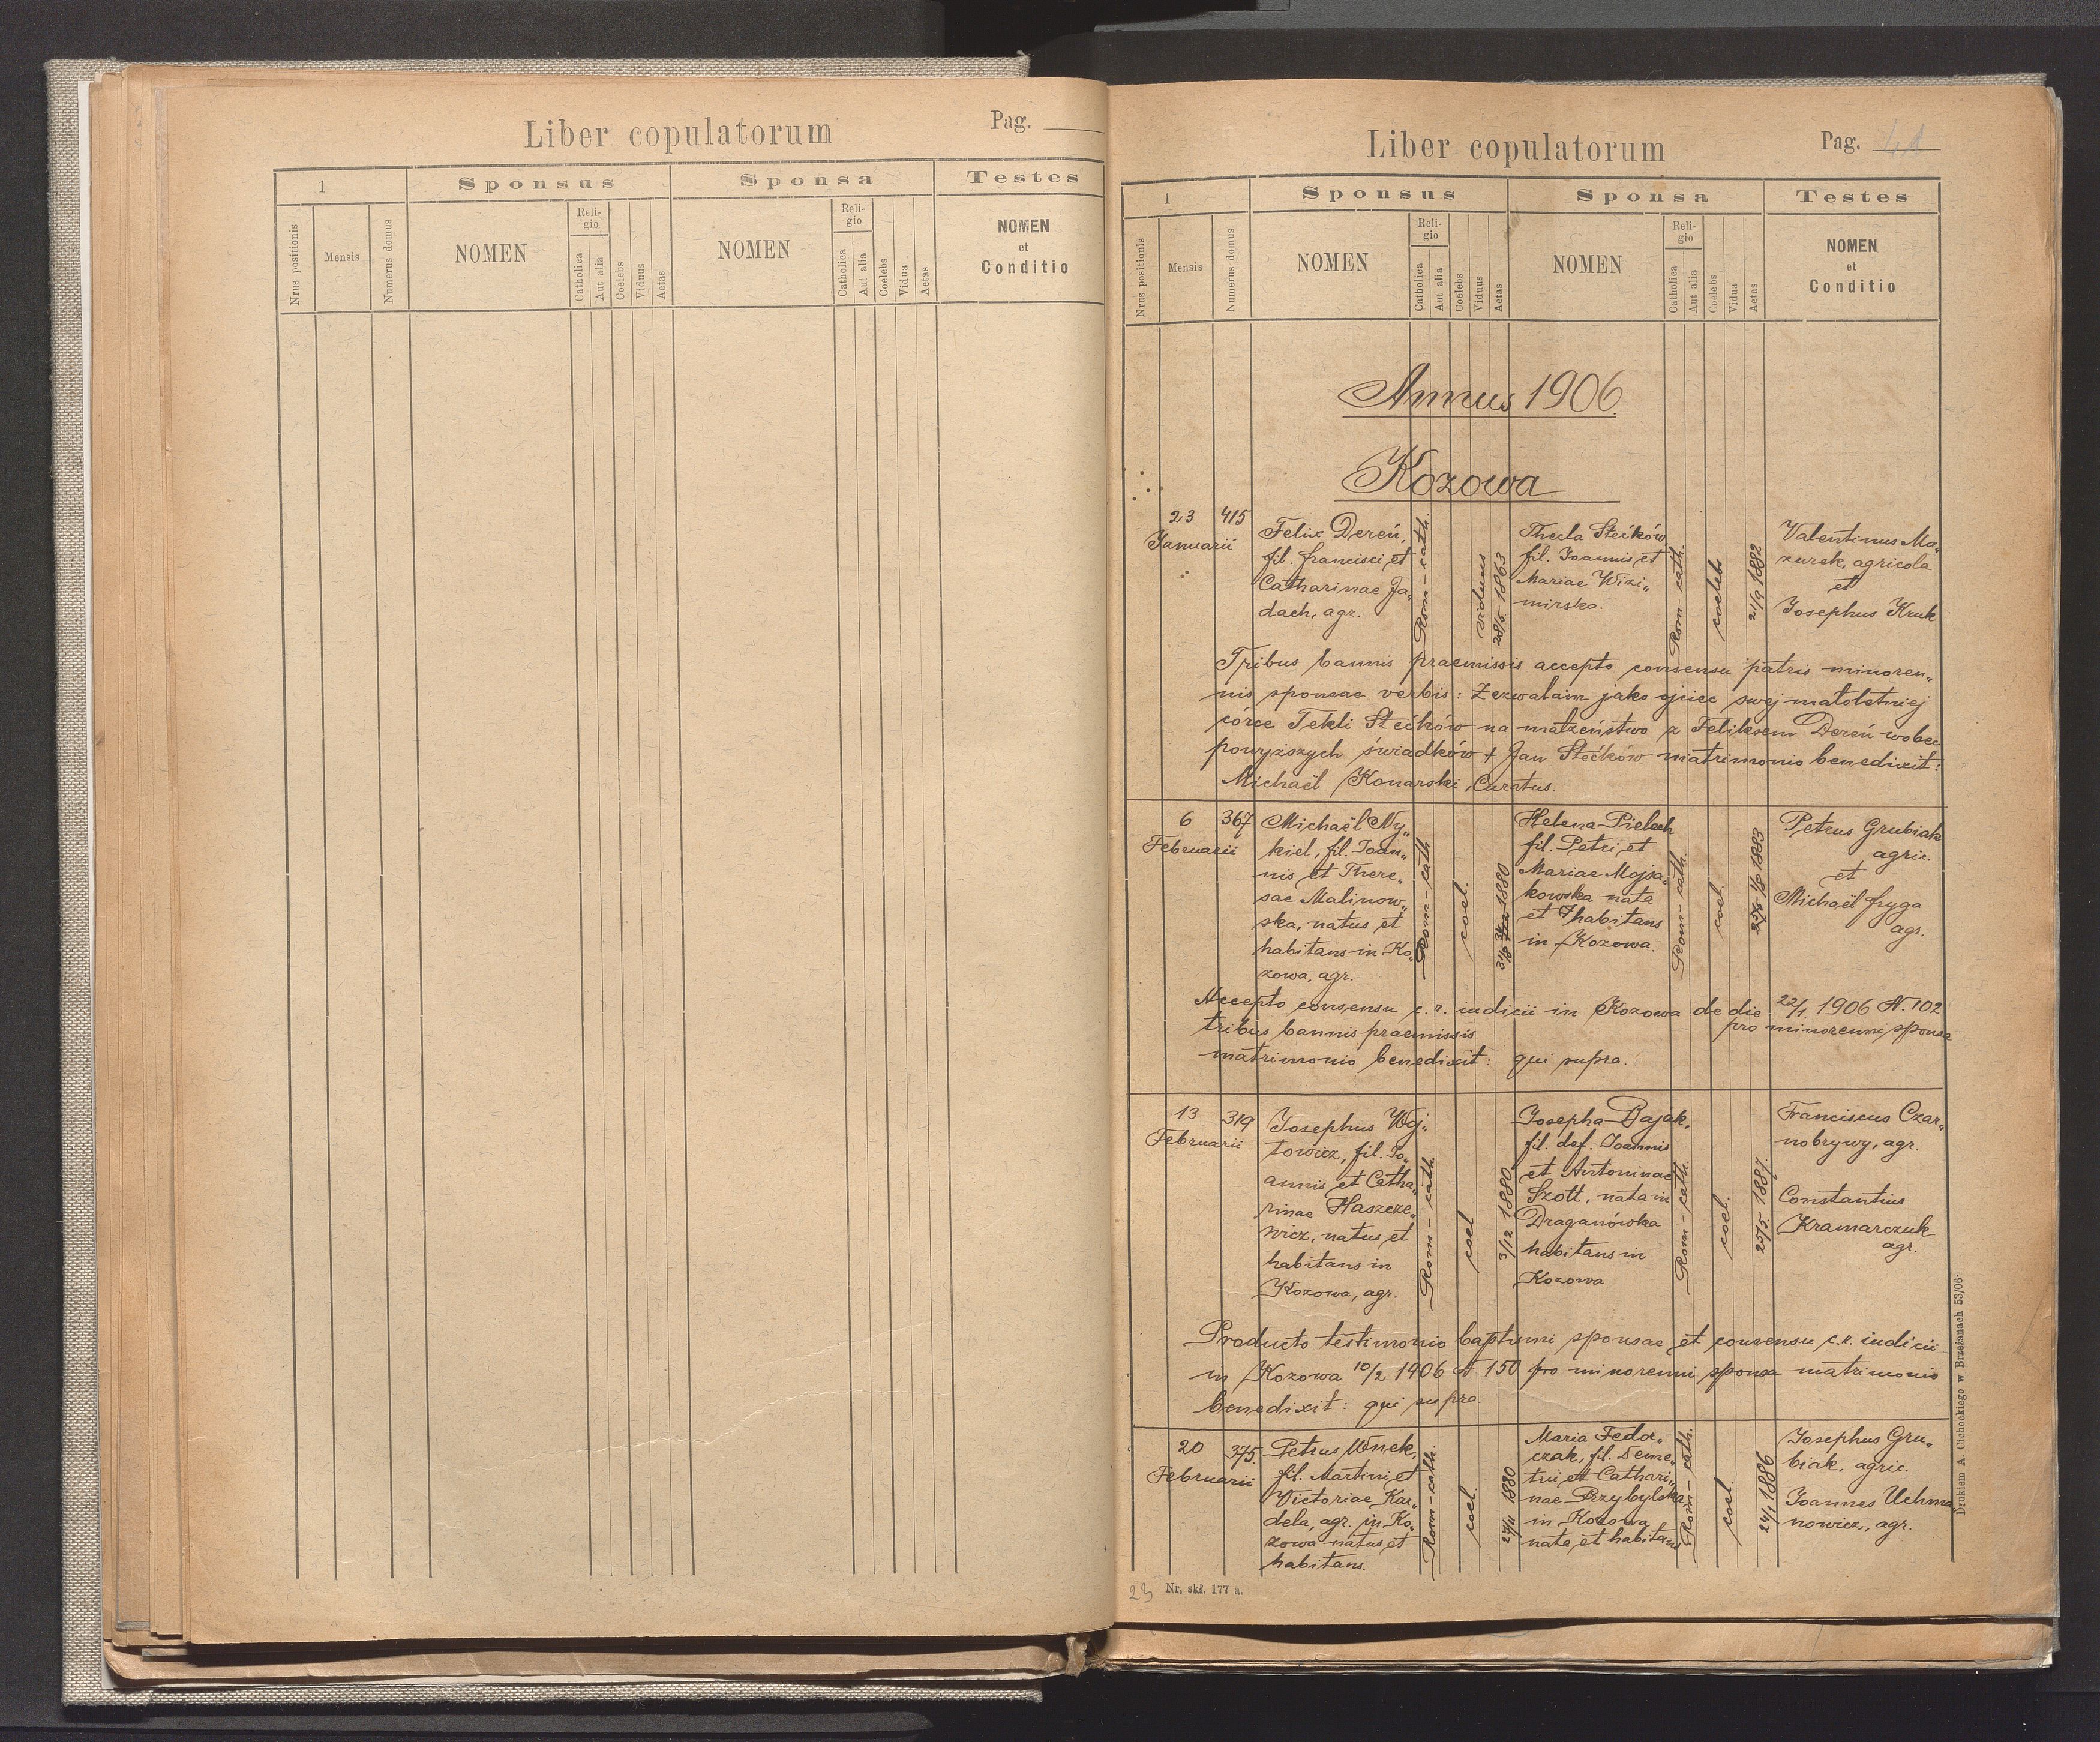 Liber copulatorum
Pag.
1
Sponsus
Sponsa
Testes
Nrus positionis
Mensis
Numerus domus
NOMEN
Reli-
gio
Catholica
Aut alia
Coelebs
Viduus
Aetas
NOMEN
Reli-
gio
Catholica
Aut alia
Coelebs
Vidua
Aetas
NOMEN
et
Conditio
Liber copulatorum
Pag.
1
Sponsus
Sponsa
Testes
Nrus positionis
Mensis
Numerus domus
NOMEN
Reli-
gio
Catholica
Aut alia
Coelebs
Viduus
Aetas
NOMEN
Reli-
gio
Catholica
Aut alia
Coelebs
Vidua
Aetas
NOMEN
et
Conditio
Annus 1906.
Kozowa
23
Januarii
415
Felix Dereń,
fil. Francisci et
Catharinae Ja„
dach, agr.
Rom-cath.
viduus
28/5. 1863
Thecla Stećków
fil. Joannis et
Mariae Wizi„
mirska.
Rom-cath.
coelebs
21/9 1882
Valentinus Ma„
zurek, agricola
et
Josephus Kruk
Tribus bannis praemissis accepto consensu patris minoren„
nis sponsae verbis: Zezwalam jako ojciec swej małoletniej
córce Tekli Stećków na małżeństwo z Feliksem Dereń wobec
powyższych świadków + Jan Stećków matrimonio benedixit:
Michaël Konarski, Curatus.
6
Februarii
367
Michaël Ny„
kiel, fil. Joan„
nis et There„
sae Malinow„
ska, natus et
habitans in Ko„
zowa, agr.
Rom-cath
coel.
1880
Helena Pielech
fil. Petri et
Mariae Mojsa„
kowska nata
et habitans
in Kozowa.
Rom-cath.
coel.
1/6 1883
Petrus Grubiak
agric.
et
Michaël Fryga
agr.
Accepto consensu c. r. iudicii in Kozowa de die 22/1. 1906 N. 102
pro minorenni sponsa
tribus bannis praemissis
matrimonio benedixit: qui supra.
13
Februarii
319
Josephus Woj„
towicz, fil. Jo„
annis et Catha„
rinae Haszcze„
wicz, natus et
habitans in
Kozowa, agr.
Rom-cath.
coel
3/12 1880
Josepha Dajak,
fil. def. Joannis
et Antoninae
Szott, nata in
Draganówka
habitans in
Kozowa
Rom-cath.
coel.
25/5. 1887.
Franciscus Czar„
nobrywy, agr.
Constantius
Kramarczuk
agr.
Producto testimonio baptismi sponsae et consensu c.r. iudicii
in Kozowa 10/2 1906 N 150 pro minorenni sponsa matrimonio
benedixit: qui supra.
20
Februarii
375.
Petrus Wnek,
fil. Martini et
Victoriae Kar„
dela, agr. in Ko„
zowa natus et
habitans.
Rom-cath.
coel.
27/11 1880
Maria Fedor„
czak, fil. Deme„
trii et Cathari„
nae Przybylska,
in Kozowa
nata et habitans
Rom-cath.
coel.
24/1 1886
Josephus Gru„
biak, agric.
Joannes Uchma„
nowicz, agr.
Drukiem A. Cichockiego w Brzeżanach 53/06.
23
Nr. skł. 177 a.